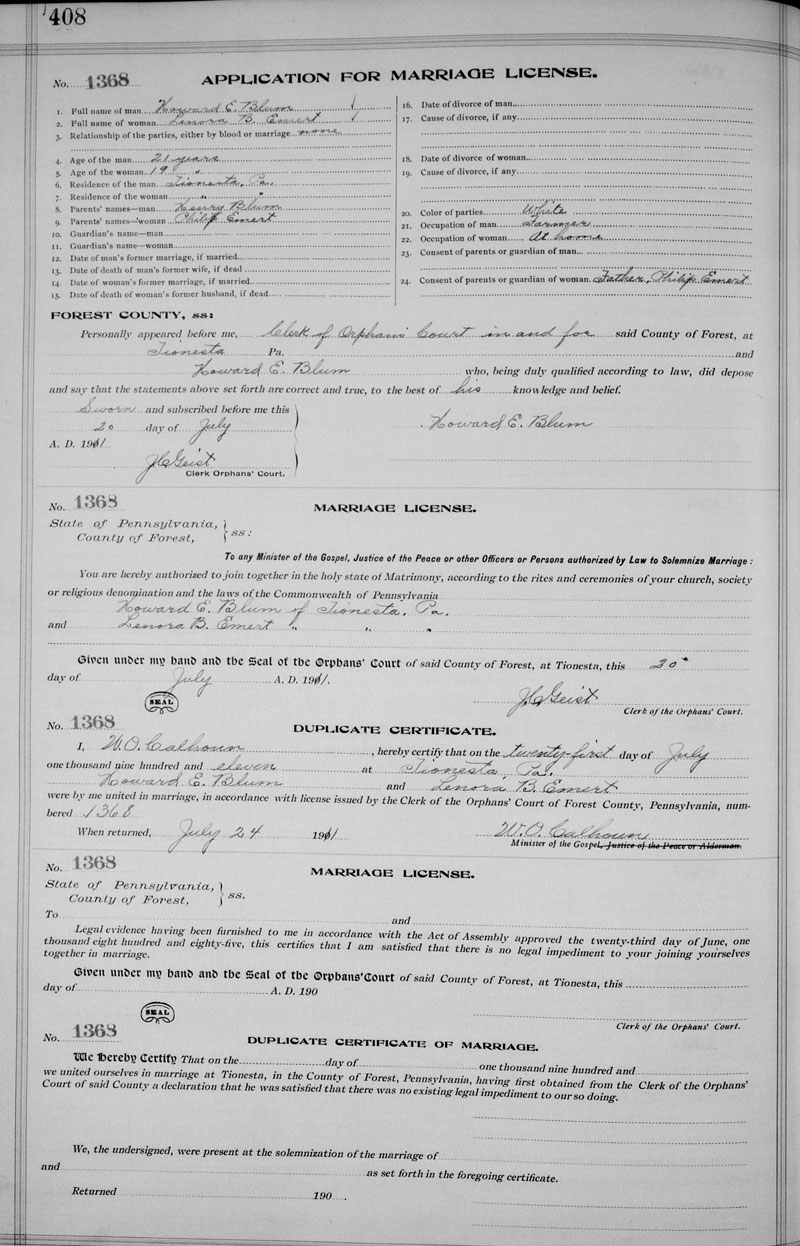 408
No. 1368 APPLICATION FOR MARRIAGE LICENSE.
1. Full name of man Howard E. Blum
2. Full name of woman Lenora B. Emert
3. Relationship of the parties, either by blood or marriage none
4. Age of the man 21 years
5. Age of the woman 19 "
6. Residence of the man Tionesta, Pa.
7. Residence of the woman " "
8. Parents' names—man Henry Blum
9. Parents' names—woman Philip Emert
10. Guardian's name—man
11. Guardian's name—woman
12. Date of man's former marriage, if married
13. Date of death of man's former wife, if dead
14. Date of woman's former marriage, if married
15. Date of death of woman's former husband, if dead
16. Date of divorce of man
17. Cause of divorce, if any
18. Date of divorce of woman
19. Cause of divorce, if any
20. Color of parties White
21. Occupation of man Farmer
22. Occupation of woman At home
23. Consent of parents or guardian of man
24. Consent of parents or guardian of woman Father, Philip Emert
FOREST COUNTY, ss:
Personally appeared before me, Clerk of Orphans Court in and for said County of Forest, at
Tionesta Pa. and
Howard E. Blum who, being duly qualified according to law, did depose
and say that the statements above set forth are correct and true, to the best of his knowledge and belief.
Sworn and subscribed before me this
20 day of July
Howard E. Blum
A. D. 1911
J C Geist
Clerk Orphans' Court.
No. 1368 MARRIAGE LICENSE.
State of Pennsylvania,
County of Forest, ss:
To any Minister of the Gospel, Justice of the Peace or other Officers or Persons authorized by Law to Solemnize Marriage:
You are hereby authorized to join together in the holy state of Matrimony, according to the rites and ceremonies of your church, society
or religious denomination and the laws of the Commonwealth of Pennsylvania
Howard E. Blum of Tionesta, Pa.
and Lenora B. Emert " " "
Given under my hand and the Seal of the Orphans' Court of said County of Forest, at Tionesta, this 20"
day of July A. D. 1911.
SEAL
J C Geist
Clerk of the Orphans' Court.
No. 1368 DUPLICATE CERTIFICATE.
I, W. O. Calhoun, hereby certify that on the twenty-first day of July
one thousand nine hundred and eleven at Tionesta, Pa.
Howard E. Blum and Lenora B. Emert
were by me united in marriage, in accordance with license issued by the Clerk of the Orphans' Court of Forest County, Pennsylvania, num-
bered 1368
When returned, July 24 1911 W. O. Calhoun
Minister of the Gospel, Justice of the Peace or Alderman.
No. 1368 MARRIAGE LICENSE.
State of Pennsylvania,
County of Forest, ss.
To and
Legal evidence having been furnished to me in accordance with the Act of Assembly approved the twenty-third day of June, one
thousand eight hundred and eighty-five, this certifies that I am satisfied that there is no legal impediment to your joining yourselves
together in marriage.
Given under my hand and the Seal of the Orphans' Court of said County of Forest, at Tionesta, this
day of A. D. 190
SEAL
Clerk of the Orphans' Court.
No. 1368 DUPLICATE CERTIFICATE OF MARRIAGE.
We Hereby Certify That on the day of one thousand nine hundred and
we united ourselves in marriage at Tionesta, in the County of Forest, Pennsylvania, having first obtained from the Clerk of the Orphans'
Court of said County a declaration that he was satisfied that there was no existing legal impediment to our so doing.
We, the undersigned, were present at the solemnization of the marriage of
and as set forth in the foregoing certificate.
Returned 190 .